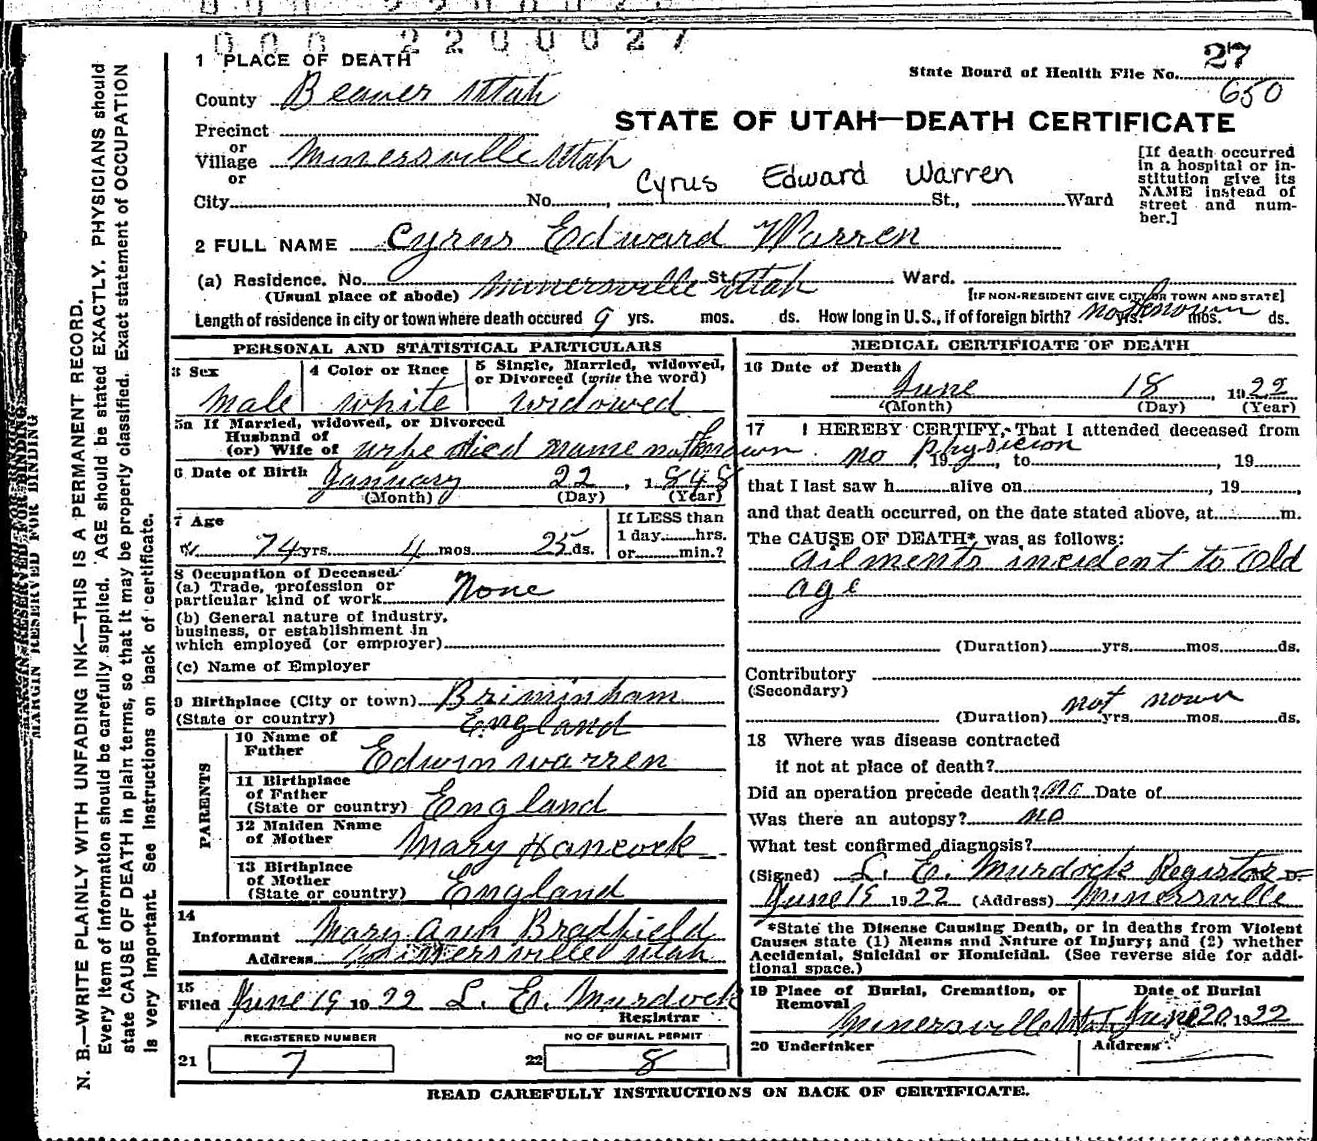 000 2200027
27
State Board of Health File No.
650
STATE OF UTAH—DEATH CERTIFICATE
1 PLACE OF DEATH
County Beaver Utah
Precinct
or
Village Minersville Utah
or
Cyrus Edward Warren
City No. , St., Ward
[If death occurred
in a hospital or in-
stitution give its
NAME instead of
street and num-
ber.]
2 FULL NAME Cyrus Edward Warren
(a) Residence. No. Minersville St. Utah Ward.
(Usual place of abode)
[IF NON-RESIDENT GIVE CITY OR TOWN AND STATE]
Length of residence in city or town where death occured 9 yrs. mos. ds. How long in U.S., if of foreign birth? not known yrs. mos. ds.
PERSONAL AND STATISTICAL PARTICULARS
3 Sex
Male
4 Color or Race
White
5 Single, Married, widowed,
or Divorced (write the word)
Widowed
5a If Married, widowed, or Divorced
Husband of
(or) Wife of wife died name not known
6 Date of Birth January 22, 1848
(Month) (Day) (Year)
7 Age
74 yrs. 4 mos. 25 ds.
If LESS than
1 day hrs.
or min.?
8 Occupation of Deceased
(a) Trade, profession or
particular kind of work None
(b) General nature of industry,
business, or establishment in
which employed (or employer)
(c) Name of Employer
9 Birthplace (City or town) Briminham
(State or country) England
PARENTS
10 Name of
Father Edwin Warren
11 Birthplace
of Father
(State or country) England
12 Maiden Name
of Mother Mary Hancock
13 Birthplace
of Mother
(State or country) England
14
Informant Mary Ann Bradfield
Address Minersville Utah
15
Filed June 19 1922 L. E. Murdock
Registrar
REGISTERED NUMBER
21 7
NO OF BURIAL PERMIT
22 8
MEDICAL CERTIFICATE OF DEATH
16 Date of Death
June 18 1922
(Month) (Day) (Year)
17 I HEREBY CERTIFY, That I attended deceased from
no Physicion , 19 , to , 19
that I last saw h alive on , 19 ,
and that death occurred, on the date stated above, at m.
The CAUSE OF DEATH* was as follows:
ailments incident to Old
age
(Duration) yrs. mos. ds.
Contributory
(Secondary)
not nown
(Duration) yrs. mos. ds.
18 Where was disease contracted
if not at place of death?
Did an operation precede death? no Date of
Was there an autopsy? no
What test confirmed diagnosis?
(Signed) L. E. Murdock Registar D.
June 19 1922 (Address) Minersville
*State the Disease Causing Death, or in deaths from Violent
Causes state (1) Means and Nature of Injury; and (2) whether
Accidental, Suicidal or Homicidal. (See reverse side for addi-
tional space.)
19 Place of Burial, Cremation, or
Removal
Minersville Utah
Date of Burial
June 20, 1922
20 Undertaker
Address
READ CAREFULLY INSTRUCTIONS ON BACK OF CERTIFICATE.
MARGIN RESERVED FOR BINDING
N. B.—WRITE PLAINLY WITH UNFADING INK—THIS IS A PERMANENT RECORD.
Every item of information should be carefully supplied. AGE should be stated EXACTLY. PHYSICIANS should
state CAUSE OF DEATH in plain terms, so that it may be properly classified. Exact statement of OCCUPATION
is very important. See instructions on back of certificate.